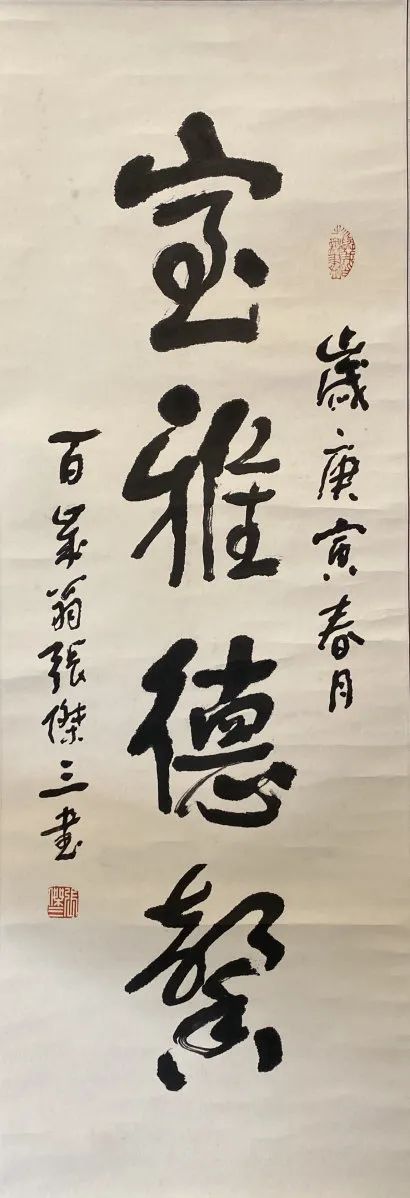 歲庚寅春月
室雅德馨
百歲翁張傑三書